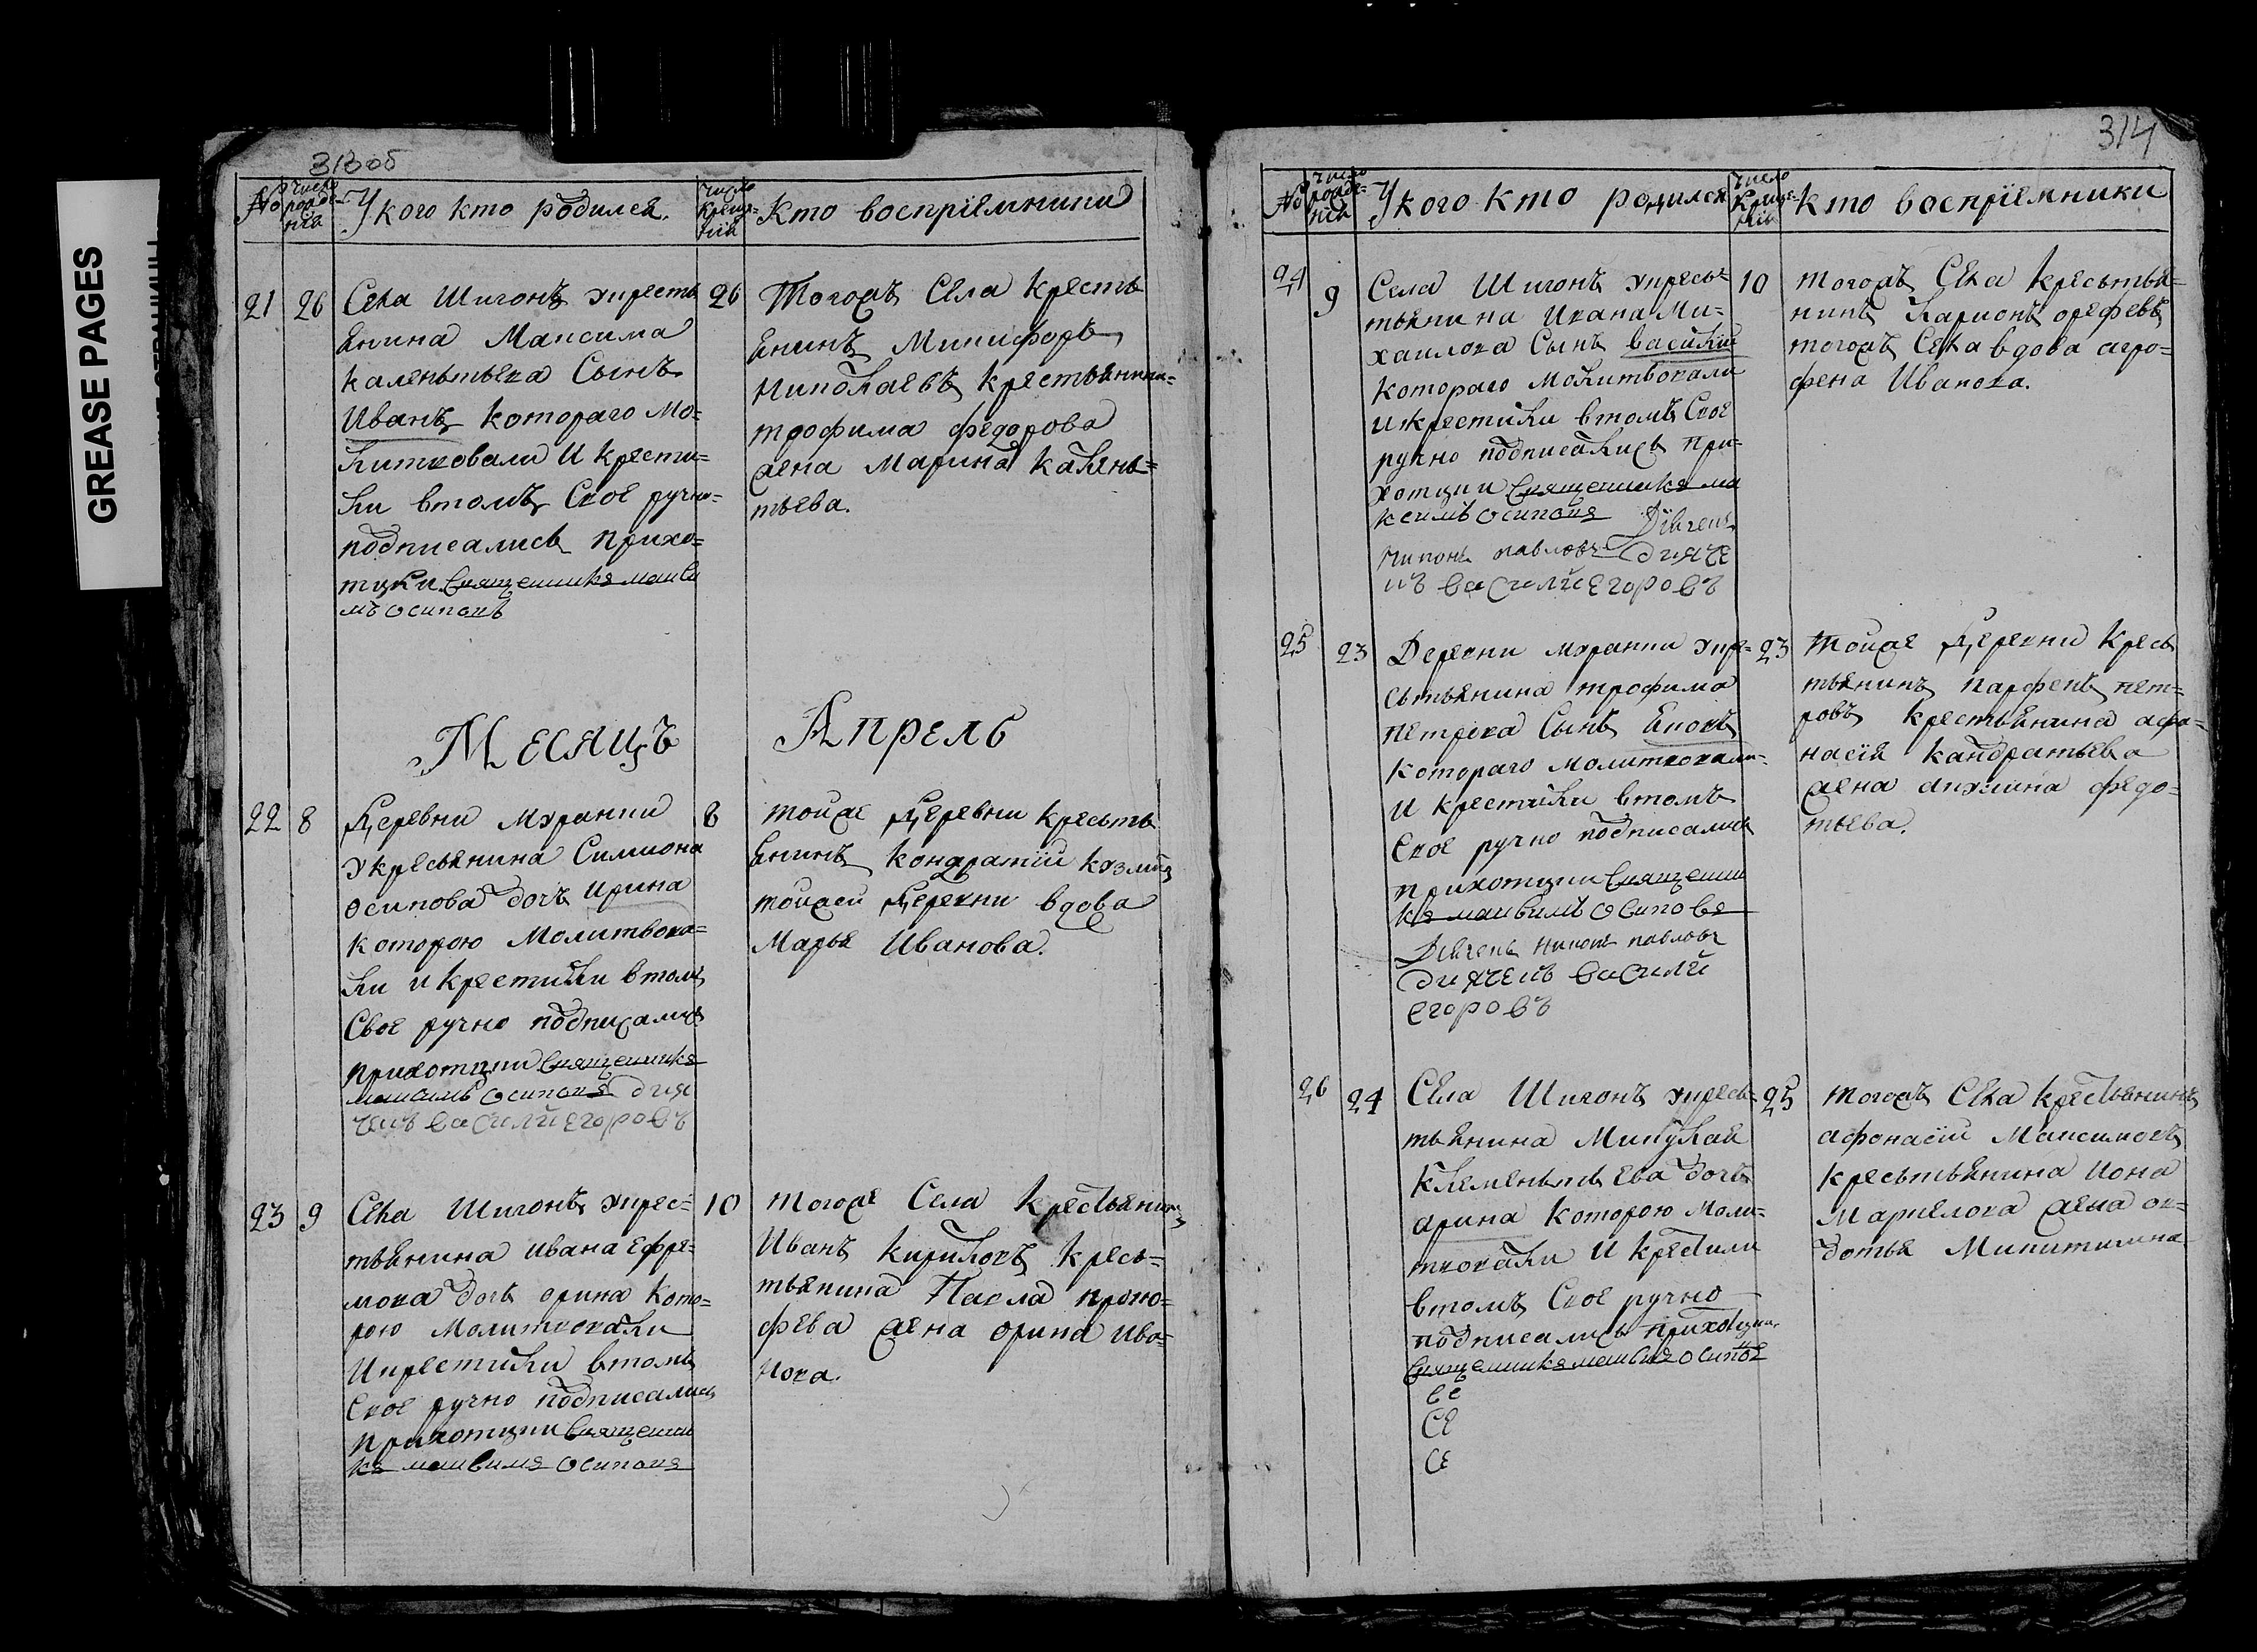 GREASE PAGES
313об
№ число рожде-нія У кого кто родился. число креще-нія Кто воспріемники
21 26 Села Шигонъ укресть 26
янина Максима
каленьтьева Сынъ
Иванъ котораго мо=
литвовали и крести=
ли втомъ Свое ручно=
подписались прихо=
тцки Священникъ макси
мъ осиповъ
Тогожъ Села кресть
янинъ Микифоръ
николаевъ крестьянина=
трофима федорова
жена Марина калень=
тьева.
Месяцъ Апрель
22 8 Деревни Муранки 8
укресьянина Симиона
осипова дочь ирина
которою Молитвова=
ли и крестили втомъ
Свое ручно подписались
прихотцки Священникъ
максимъ осиповъ дия
чекъ василй егоровъ
тойже Деревни кресьть
янинъ кондратїй козмин
тойжей Деревни вдова
Марья Иванова.
23 9 Села Шигонъ укрес= 10
тьянина ивана ефре=
мова дочь орина кото=
рою Молитвовали
икрестили втомъ
Свое ручно подписались
прихотцки Священни
къ максимъ осиповъ
тогоже Села крестьянинъ
Иванъ кириловъ кресь=
тьянина Павла проко=
фева жена орина ива=
нова.
314
№ число рожде-нія У кого кто родился число креще-нія кто воспріемники
24 9 Села Шигонъ укресь= 10
тьянина Ивана Ми=
хаилова Сынъ василий
котораго молитвовали
икрестили втомъ Свое
ручно подписались при=
хотцки Священникъ ма
ксимъ осиповъ Дьячекъ
никонъ павловъ дияче
къ василйегоровъ
тогожъ Села кресьтья=
нинъ Ларионъ орефевъ
тогожъ Села вдова агро=
фена Иванова.
25 23 Деревни муранки укре= 23
сьтьянина трофима
петрова Сынъ
котораго молитвовали=
и крестили втомъ
Свое ручно подписались
прихотцки Священни
къ максимъ осиповъ
Дьячекъ никонъ павловъ
диячекъ василй
егоровъ
тойже Деревни кресь
тьянинъ парфенъ пет=
ровъ крестьянина афо=
насїя кандратьева
жена акулина федо=
тьева.
26 24 Села Шигонъ укресь= 25
тьянина Микулая
клеменьтьева дочь
арина которою Моли=
твовали и крестили
втомъ Свое ручно
подписались прихотцки
Священникъ максимъ осипов
се
се
се
тогожъ Села крестьянинъ
афонасїй Максимовъ
кресьтьянина иона
Маркелова жена ов=
дотья Микитишна